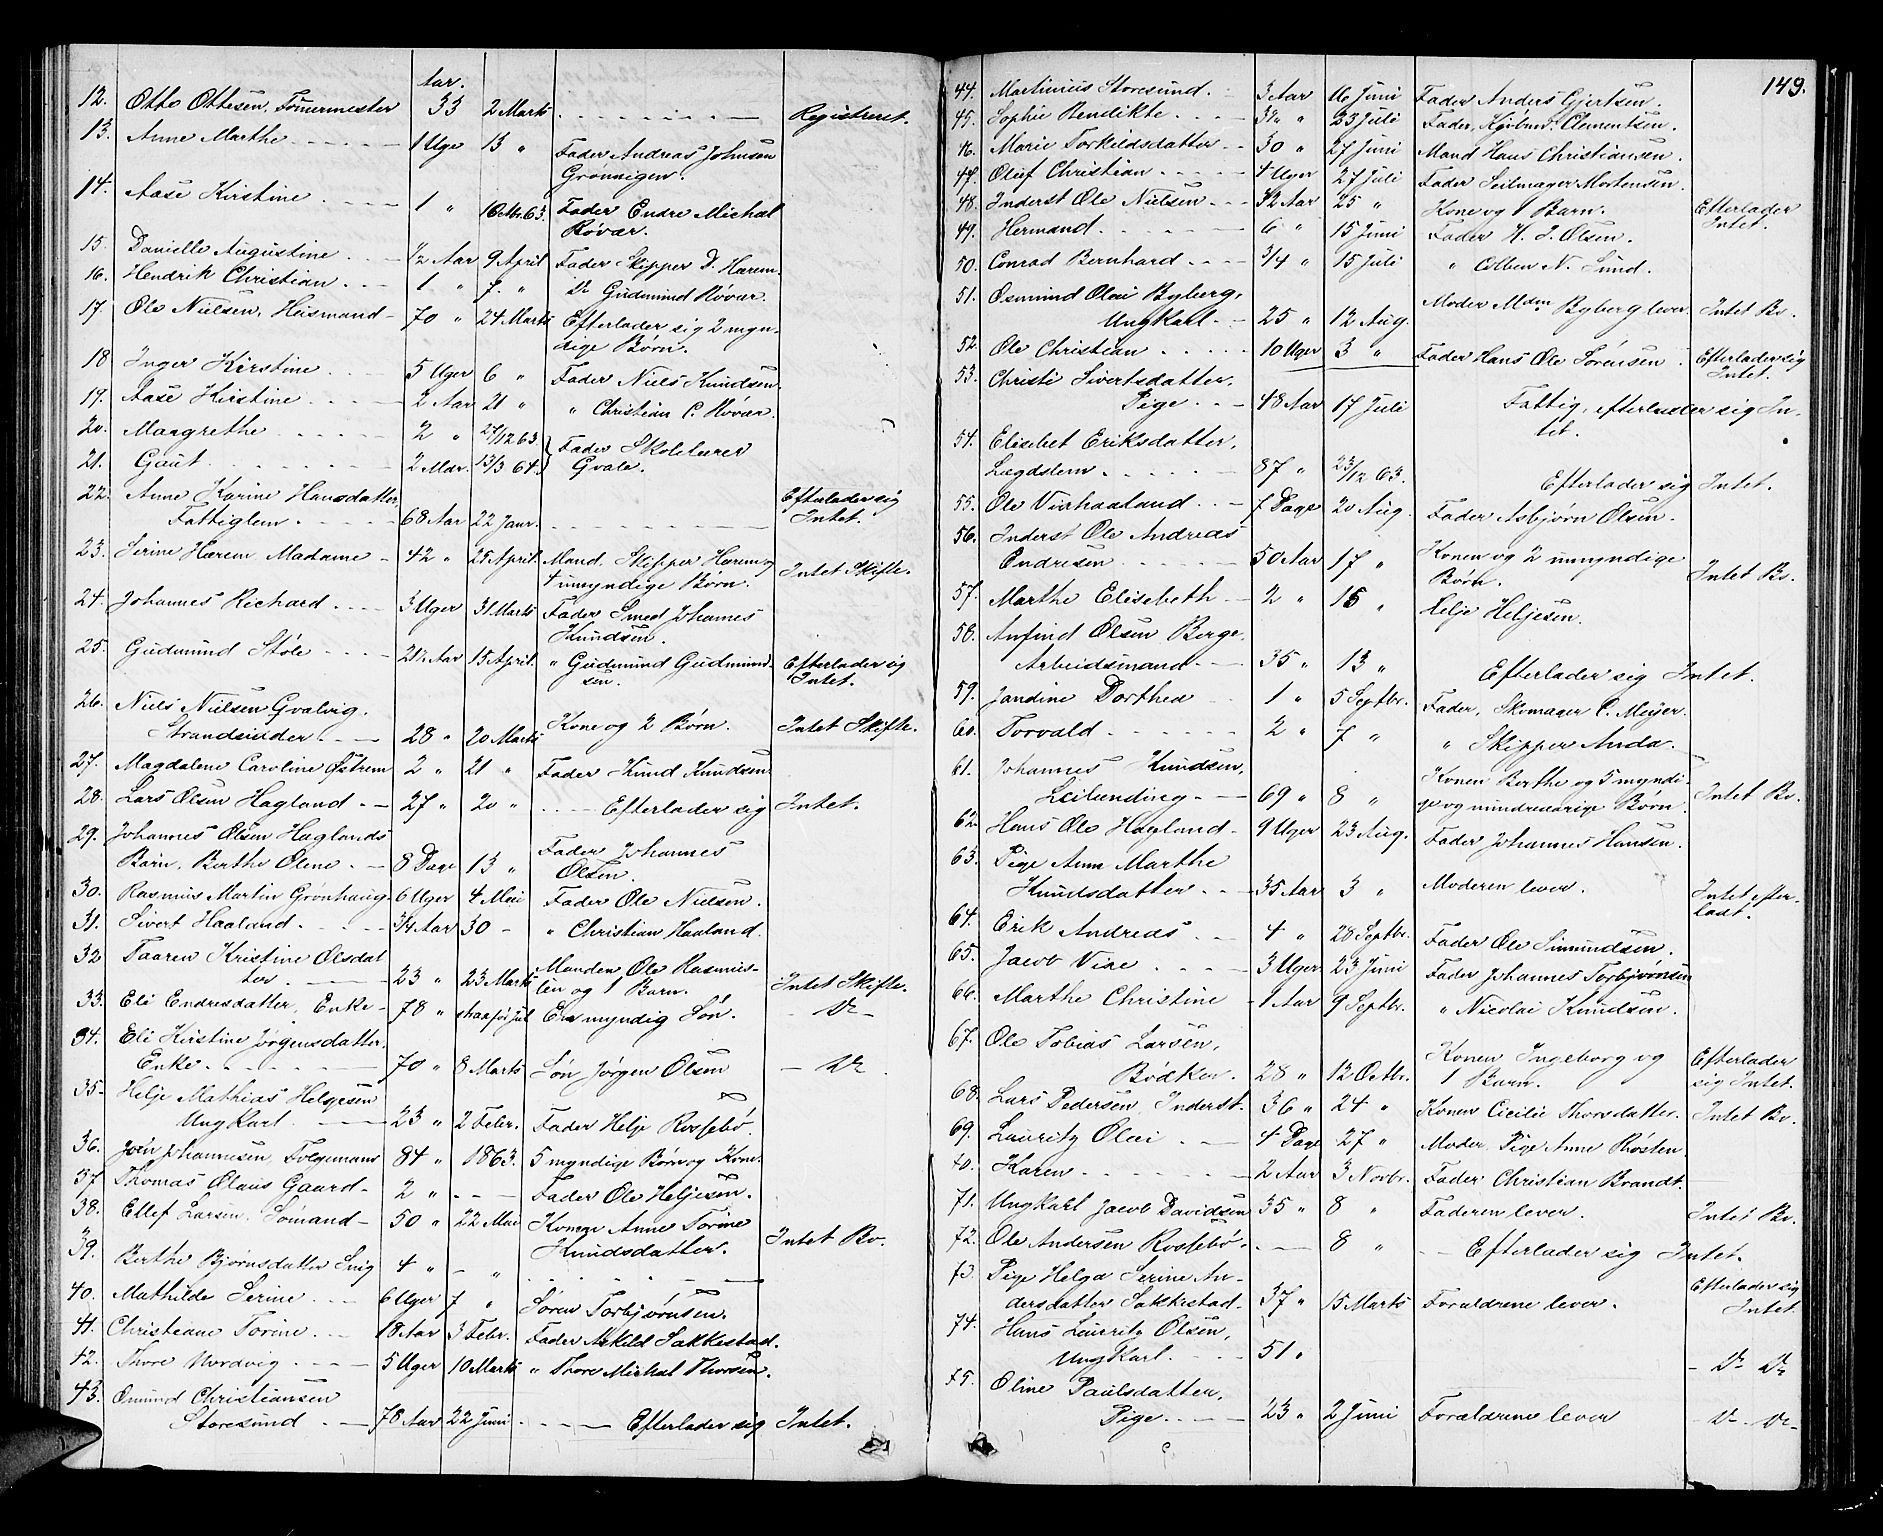 Aar.
12. Otto Ottesen, Tømmermester 33 2 Marts Registreret.
13. Anne Marthe 1 Uge 13 " Fader Andreas Johnsen
Grønnigen.
14. Aase Kirstine 1 " 16 Nbr. 63. Fader Endre Michal
Røvær.
15. Danielle Augustine 1/2 Aar 9 April Fader Skipper D. Hærem.
16. Hendrik Christian 1 " 7. " Do Gudmund Røvær.
17. Ole Nielsen, Huusmand 70 " 24 Marts Efterlader sig 2 myn-
dige Børn.
18 Inger Kirstine 5 Uger 6 " Fader Niels Knudsen
19. Aase Kirstine 2 Aar 21 " " Christian C. Røvær.
20. Margrethe 2 " 27/12 63. Fader Skolelærer
21. Gaut 2 Mdr. 13/3 64. Gvale.
22. Anne Karine Hansdatter, Efterlader sig
Fattiglem 68 Aar 22 Janr. Intet.
23. Serine Hærem Madame 42 " 25 April. Mand. Skipper Hærem og
4 umyndige Børn. Intet Skifte.
24. Johannes Richard 3 Uger 31 Marts Fader Smed Johannes
Knudsen.
25. Gudmund Støle 2 1/2 Aar 15 April. " Gudmund Gudmund- Efterlader sig
sen. Intet.
26. Niels Nielsen Gvalvig.
Strandsidder 28 " 20 Marts Kone og 2 Børn. Intet Skifte.
27. Magdalene Caroline Østrem 2 " 21 " Fader Knud Knudsen
28. Lars Olsen Hagland 27 " 20 " Efterlader sig Intet.
29. Johannes Olsen Haglands Fader Johannes
Barn, Berthe Oline 8 Dage 13 " Olsen.
30. Rasmus Martin Grønhaug 6 Uger 4 Mai Fader Ole Nielsen.
31. Sivert Haaland 3/4 Aar 30 - " Christian Haaland.
32 Taaren Kristine Olsdat Manden Ole Rasmus-
ter 23 " 23 Marts sen og 1 Barn. Intet Skifte.
33. Eli Endresdatter, Enke 78 " strax før Jul En myndig Søn. Do
34. Eli Kirstine Jørgensdatter.
Enke 70 " 8 Marts Søn Jørgen Olsen Do
35. Helje Mathias Helgesen
Ungkarl 23 " 2 Febr. Fader Helje Rossebø.
36. Joen Johannesen, Følgemand 84 " 1863. 5 myndige Børn og Kone.
37 Thomas Olaus Gaard 2 " Fader Ole Heljesen.
38. Ellef Larsen. Sømand 50 " 22 Mai Konen Anne Torine
Knudsdatter. Intet Bo.
39. Berthe Bjørnsdatter Snig 4 " "
40. Mathilde Serine 6 Uger 7 " Søren Torbjørnsen.
41. Christiane Torine 18 Aar 3 Febr. Fader Askild Sakkestad.
42. Thore Nordvig 5 Uger 10 Marts " Thore Michal Thorsen.
43. Omund Christiansen
Storesund 78 Aar 22 Juni Efterlader sig Intet.
149.
44. Martinius Storesund. 3 Aar 16 Juni Fader Anders Gjertsen.
45. Sophie Bendikte 3/4 " 23 Juli Fader, Kjøbm. Clementsen.
46. Marie Torkildsdatter 30 " 27 Juni Mand Hans Christiansen.
47. Oluf Christian 4 Uger 27 Juli Fader Seilmager Mortensen.
48. Inderst Ole Nielsen 32 Aar 25 " Kone og 1 Barn. Efterlader
49. Hermand. 6 " 15 Juni Fader H. J. Olsen. Intet.
50. Conrad Bernhard 3/4 " 15 Juli " Colben N. Sund.
51. Osmund Olai Byberg,
Ungkarl 25 " 12 Aug. Moder Mdm. Byberg lever. Intet Bo.
52. Ole Christian 10 Uger 3 " Fader Hans Ole Sørensen Efterlader sig
Intet.
53. Christi Sivertsdatter.
Pige 48 Aar 17 Juli Fattig, efterlader sig In-
tet.
54. Elisebet Eriksdatter,
Lægdslem. 87 " 23/12 63. Efterlader sig Intet.
55. Ole Viehaaland 7 Dage 20 Aug. Fader Asbjørn Olsen.
56. Inderst Ole Andreas
Endresen 50 Aar 17 " Konen og 2 umyndige
Børn. Intet Bo.
57. Marthe Elisebeth 2 " 15 " Helje Heljesen.
58. Anfind Olsen Berge.
Arbeidsmand 35 " 13 " Efterlader sig Intet.
59. Jandine Dorthea 1 " 5 Septbr. Fader, Skomager C. Meyer.
60. Torvald 2 " 7 " " Skipper Anda.
61. Johannes Knudsen,
Leilending 69 " 8 " Konen Berthe og 5 myndi-
ge og mindreaarige Børn. Intet Bo.
62. Hans Ole Hagland 9 Uger 23 Aug. Fader Johannes Hansen.
63. Pige Anna Marthe
Knudsdatter 35 Aar 3 " Moderen lever. Intet efter-
ladt.
64. Erik Andreas 4 " 28 Septbr. Fader Ole Simundsen.
65. Jacob Viae 3 Uger 23 Juni Fader Johannes Torbjørnsen
66. Marthe Christine 1 Aar 9 Septbr. " Nicolai Knudsen.
67. Ole Tobias Larsen,
Bødker. 28 " 12 Octbr. Konen Ingeborg og Efterlader
1 Barn. sig Intet.
68. Lars Pedersen Inderst. 36 " 24 " Konen Cicilie Thorsdatter. Intet Bo.
69. Lauritz Olai 4 Dage 27 " Moder, Pige Anne Røsten
70. Karen 2 Aar 3 Novbr. Fader Christian Brandt.
71. Ungkarl Jacob Davidsen 35 " 8 " Faderen lever. Intet Bo.
72. Ole Andersen Rossebø. 8 " Efterlader sig Intet.
73. Pige Helga Serine An- Efterlader sig
dersdatter Sakkestad 37 " 15 Marts Forældrene lever. Intet.
74. Hans Lauritz Olsen,
Ungkarl. 51 " Do Do
75. Oline Paulsdatter,
Pige 23 " 2 Juni Forældrene lever Do Do